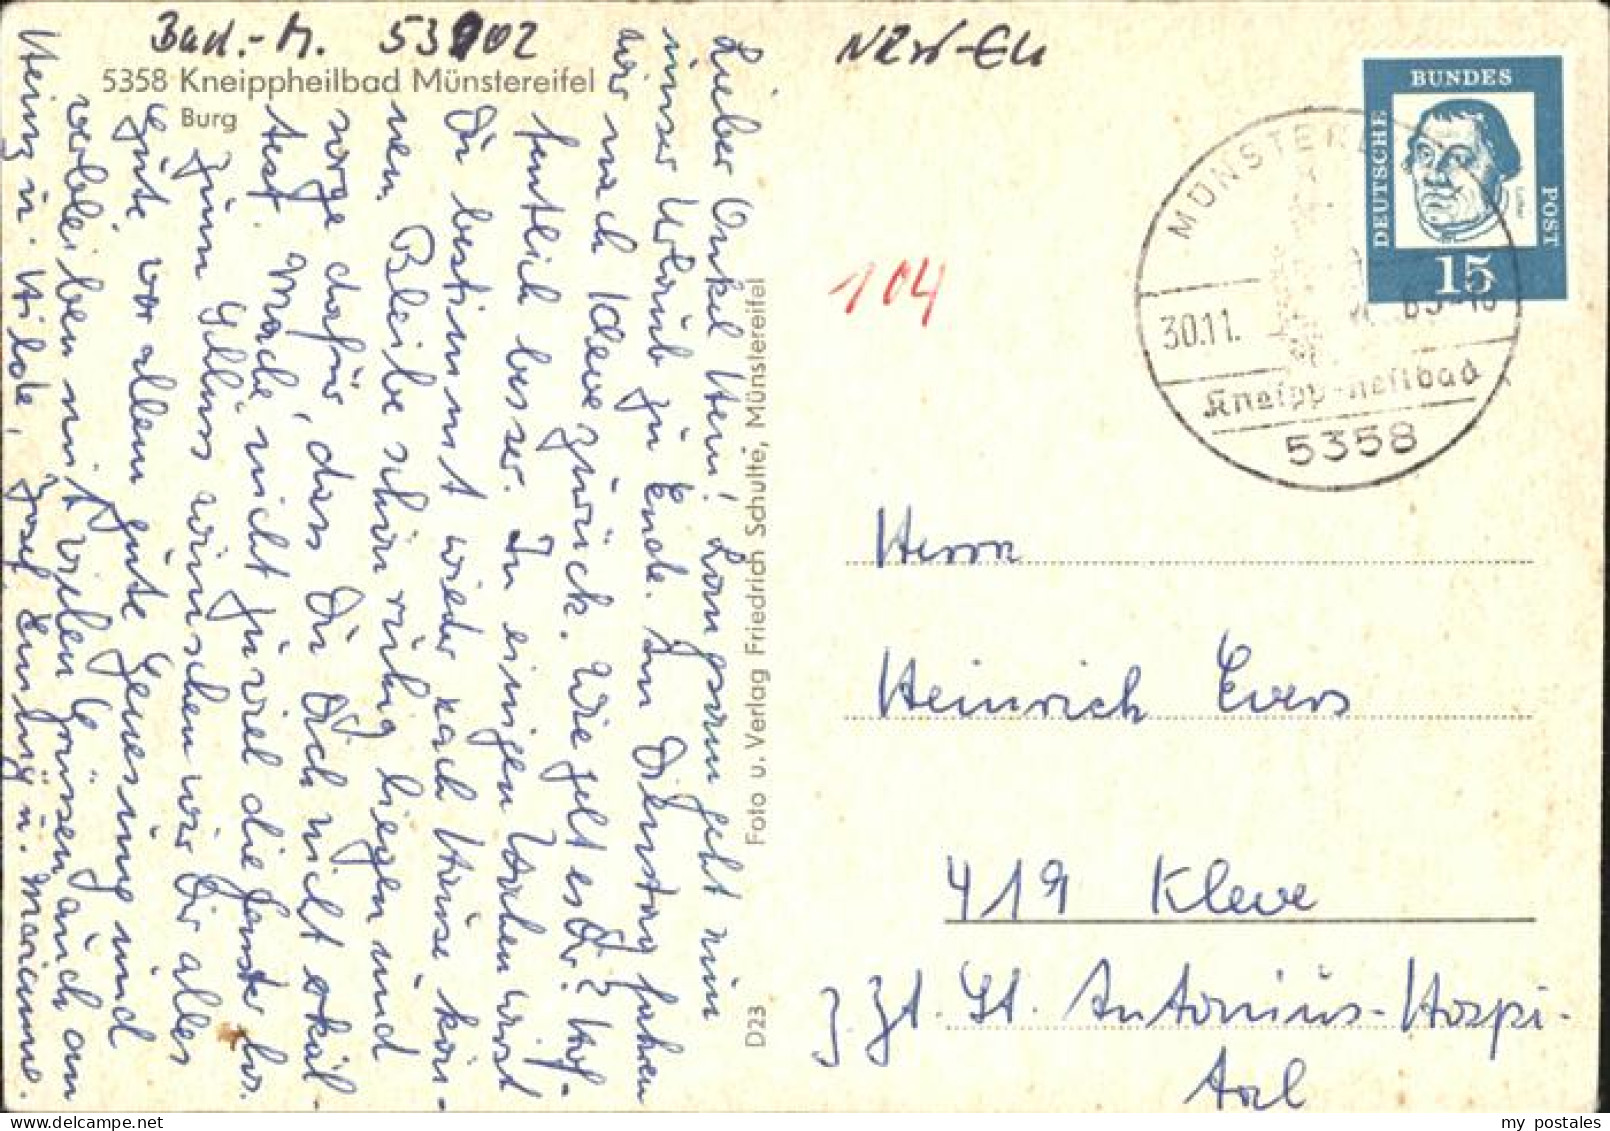 Bad.-M. 53902
NRW-EU
5358 Kneippheilbad Münstereifel
Burg
Lieber Onkel Hein! Langsam geht nun
unser Urlaub zu Ende. Am Dienstag fahren
wir nach Kleve zurück. Wie geht es Dir? Hof-
fentlich besser. In einigen Wochen wirst
Du bestimmt wieder nach Hause kön-
nen. Bleibe schön ruhig liegen und
sorge dafür, dass Du Dich nicht erkäl
test. Mache nicht zu viel die Fenster los.
Zum Schluss wünschen wir Dir alles
Gute vor allem gute Genesung und
verbleiben mit vielen Grüssen auch an
Heinz u. Hilde, Josef und Marianne.
Foto u. Verlag Friedrich Schulte, Münstereifel
D23
104
DEUTSCHE
BUNDES
POST
15
Luther
MÜNSTEREIFEL
30.11.
Kneipp-Heilbad
5358
Herrn
Heinrich Evers
419 Kleve
z Zt. St. Antonius-Hospi-
tal
my postales